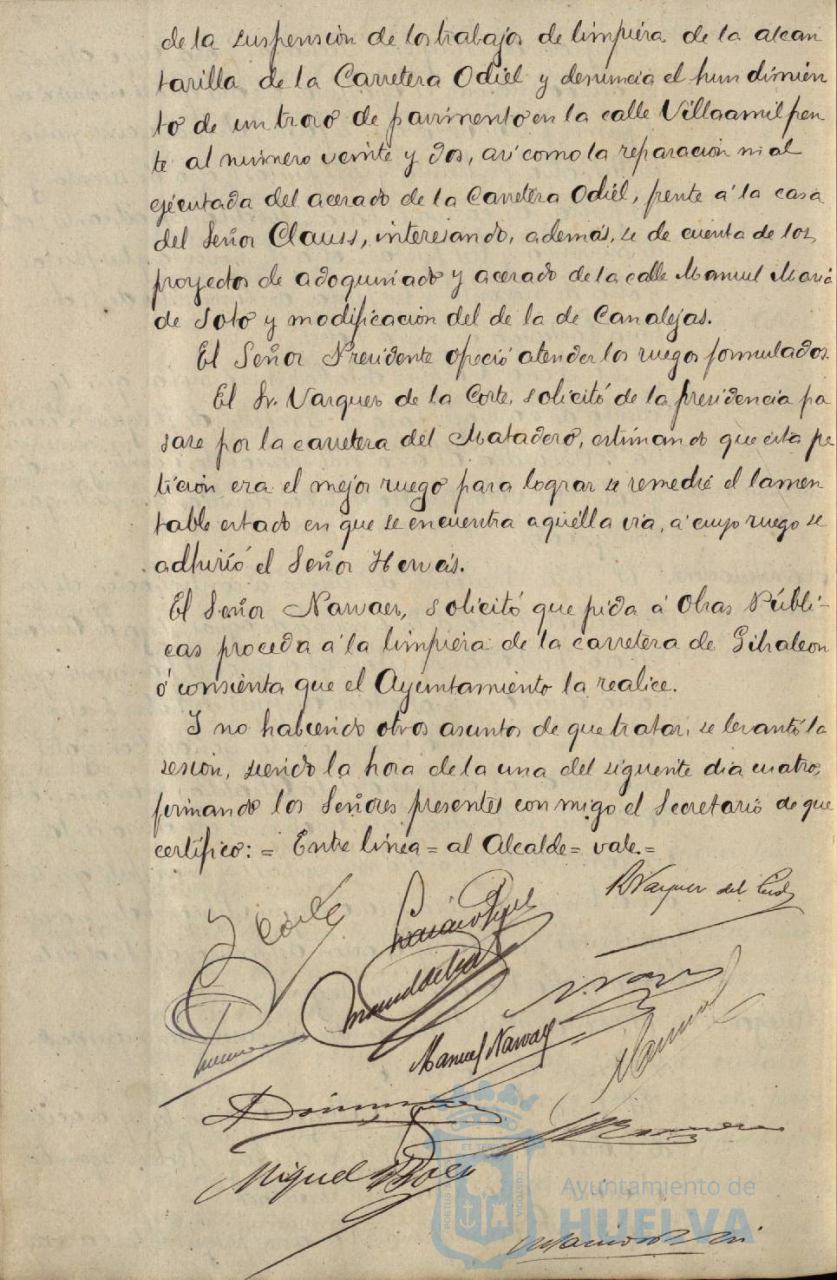 de la suspensión de los trabajos de limpieza de la alcan
tarilla de la Carretera Odiel y denuncia el hundimien
to de un trozo de pavimento en la calle Villaamil fren
te al número veinte y dos, así como la reparación mal
ejecutada del acerado de la Carretera Odiel, frente á la casa
del Señor Clauss, interesando, además, se de cuenta de los
proyectos de adoquinado y acerado de la calle Manuel María
de Soto y modificación del de la de Canalejas.
El Señor Presidente ofreció atender los ruegos formulados.
El Sr. Vazquez de la Corte, solicitó de la presidencia pa
sase por la carretera del Matadero, estimando que esta pe
tición era el mejor ruego para lograr se remedie el lamen
table estado en que se encuentra aquélla vía, á cuyo ruego se
adhirió el Señor Hervás.
El Señor Narvaez, solicitó que pida á Obras Públi-
cas proceda á la limpieza de la carretera de Gibraleon
ó consienta que el Ayuntamiento la realice.
Y no habiendo otros asuntos de que tratar, se levantó la
sesión, siendo la hora de la una del siguiente dia cuatro,
firmando los Señores presentes conmigo el Secretario de que
certifico: = Entre linea = al Alcalde = vale. =
Corte
R Vazquez del
Manuel Narvaez
Miguel
Ayuntamiento de
HUELVA